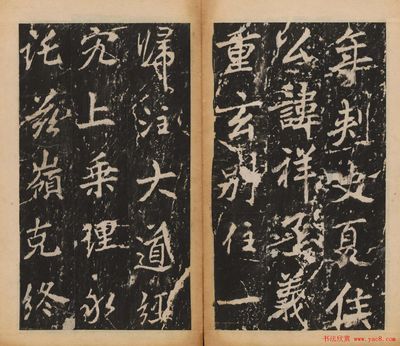 年刺史夏侯
公諱祥承義
重玄别住一
歸注大道經
究上乘理永
託兹嶺克終
书法欣赏 www.yac8.com